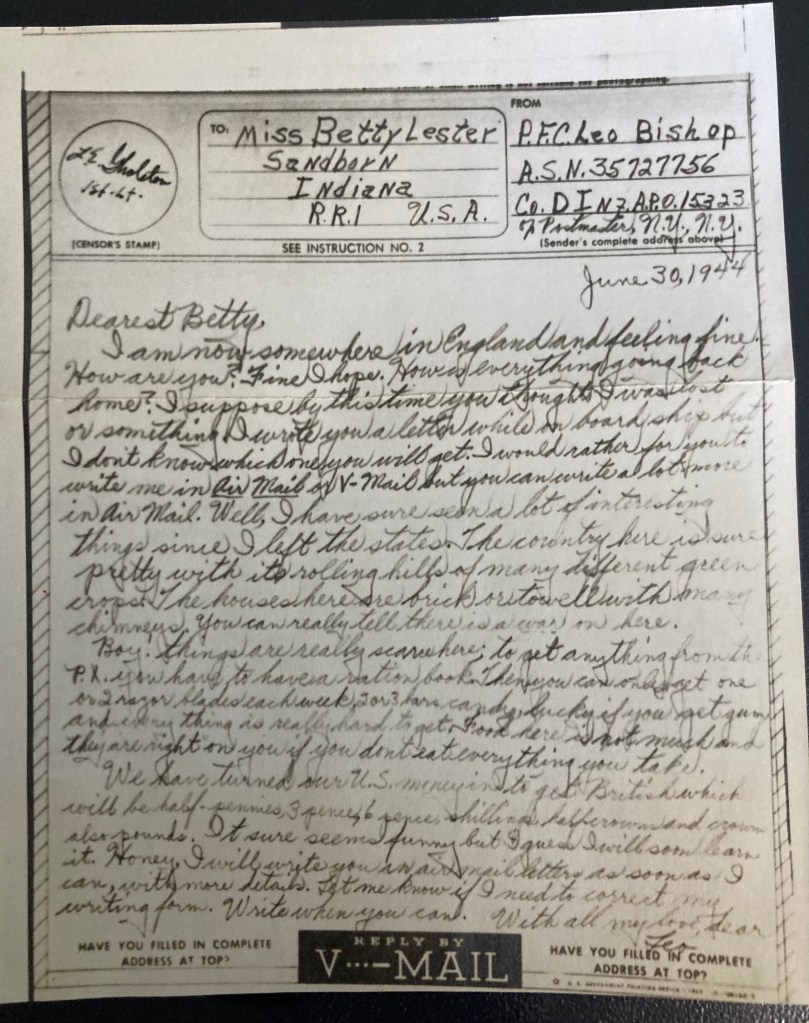 writing is not suitable for photographing.
FROM
TO: Miss Betty Lester
Sandborn
Indiana
R.R.1 U.S.A.
P.F.C. Leo Bishop
A.S.N. 35727756
Co. D Inz. A.P.O. 15323
% Postmaster, N.Y., N.Y.
(Sender's complete address above)
1st. Lt.
(CENSOR'S STAMP)
SEE INSTRUCTION NO. 2
June 30, 1944
Dearest Betty,
I am now somewhere in England and feeling fine.
How are you? Fine I hope. How is everything going back
home? I suppose by this time you thought I was lost
or something. I wrote you a letter while on board ship but
I dont know which one you will get. I would rather for you to
write me in Air Mail or V-Mail but you can write a lot more
in Air Mail. Well, I have sure seen a lot of interesting
things since I left the states. The country here is sure
pretty with its rolling hills of many different green
crops. The houses here are brick or with many
chimneys. You can really tell there is a war on here.
Boy. things are really scarce here; to get anything from the
P.X. you have to have a ration book. Then you can only get one
or 2 razor blades each week, 2 or 3 bars candy, lucky if you get gum
and every thing is really hard to get. Food here is not much and
they are right on you if you dont eat everything you take.
We have turned our U.S. money in to get British which
will be half-pennies, 3 pence, 6 pence, shillings, halfcrowns and crowns
also pounds. It sure seems funny but I guess I will soon learn
it. Honey, I will write you in air mail letters as soon as I
can, with more details. Let me know if I need to correct my
writing form. Write when you can. With all my love, dear
Leo
HAVE YOU FILLED IN COMPLETE
ADDRESS AT TOP?
REPLY BY
V···—MAIL
HAVE YOU FILLED IN COMPLETE
ADDRESS AT TOP?